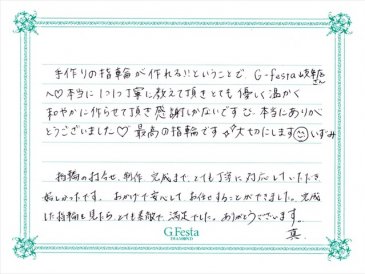 手作りの指輪が作れる!!ということで、G-festa岐阜店さん
へ♡本当に1つ1つ丁寧に教えて頂きとても優しく温かく
和やかに作らせて頂き感謝しかないです。本当にありが
とうございました♡最高の指輪です 大切にします いずみ
指輪の打合せ、制作、完成まで、とても丁寧に対応していただき
嬉しかったです。おかげで安心して、お任せすることができました。完成
した指輪を見たら、とても素敵で、満足でした。ありがとうございます。
真
G.Festa
DIAMOND